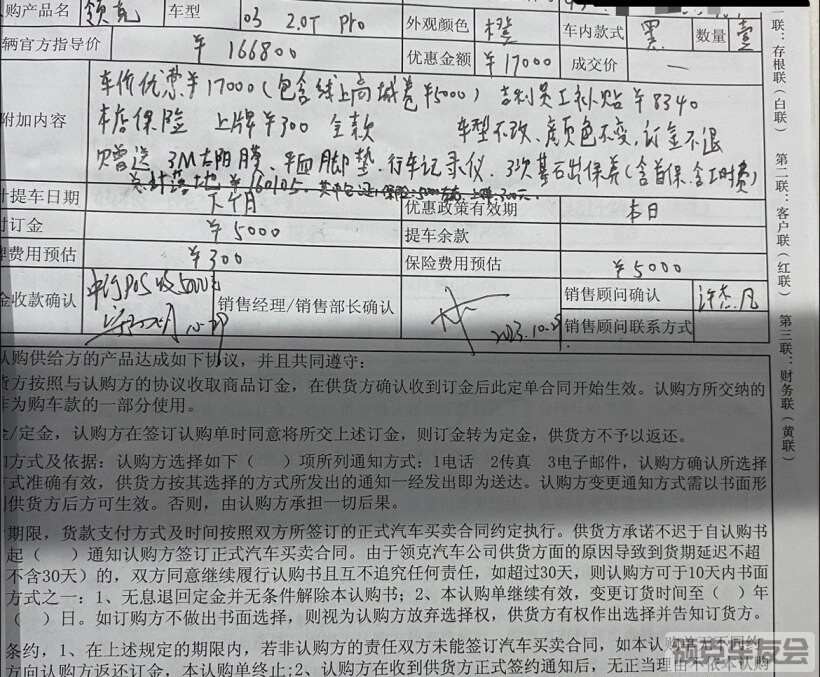 认购产品名 领克 车型 03 2.0T Pro 外观颜色 橙 车内款式 黑 数量 壹
辆官方指导价 ¥166800 优惠金额 ¥17000 成交价 —
附加内容
车价优惠¥17000(包含线上商城卷¥5000) 吉利员工补贴¥8340
本店保险 上牌¥300 全款 车型不改、颜色不变,订金不退
欠赠送 3M太阳膜、平面脚垫、行车记录仪、3次基础保养(含首保、含工时费)
计提车日期 下个月 优惠政策有效期 本日
付订金 ¥5000 提车余款
牌费用预估 ¥300 保险费用预估 ¥5000
金收款确认 中行POS收5000元 销售经理/销售部长确认 2023.10.29 销售顾问确认 许杰凡
销售顾问联系方式
认购供给方的产品达成如下协议,并且共同遵守:
货方按照与认购方的协议收取商品订金,在供货方确认收到订金后此定单合同开始生效。认购方所交纳的
作为购车款的一部分使用。
金/定金,认购方在签订认购单时同意将所交上述订金,则订金转为定金,供货方不予以返还。
知方式及依据:认购方选择如下( )项所列通知方式:1电话 2传真 3电子邮件,认购方确认所选择
式准确有效,供货方按其选择的方式所发出的通知一经发出即为送达。认购方变更通知方式需以书面形
供货方后方可生效。否则,由认购方承担一切后果。
期限,货款支付方式及时间按照双方所签订的正式汽车买卖合同约定执行。供货方承诺不迟于自认购书
起( )通知认购方签订正式汽车买卖合同。由于领克汽车公司供货方面的原因导致到货期延迟不超
不含30天)的,双方同意继续履行认购书且互不追究任何责任,如超过30天,则认购方可于10天内书面
方式之一:1、无息退回定金并无条件解除本认购书;2、本认购单继续有效,变更订货时间至( )年
( )日。如订购方不做出书面选择,则视为认购方放弃选择权,供货方有权作出选择并告知订货方。
条约,1、在上述规定的期限内,若非认购方的责任双方未能签订汽车买卖合同,如本认购单无不同约
方向认购方返还订金,本认购单终止;2、认购方在收到供货方正式签约通知后,无正当理由不依本认购
一联:存根联(白联) 第二联:客户联(红联) 第三联:财务联(黄联)
领克车友会